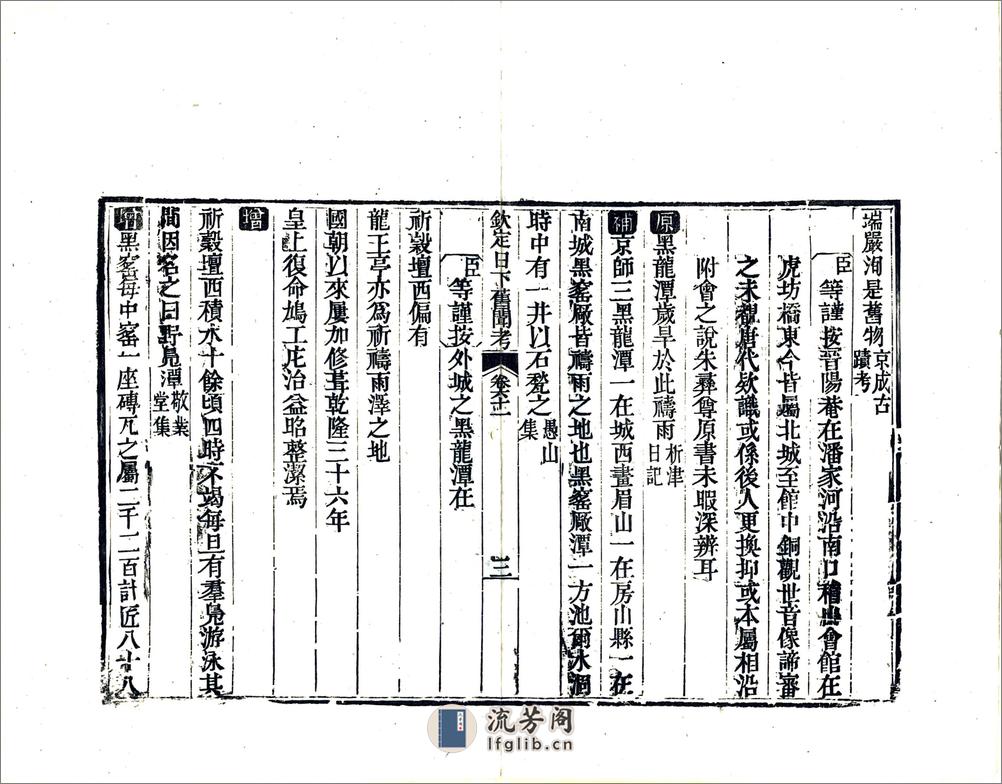 端嚴洵是舊物京成古蹟考
臣等謹按晉陽菴在潘家河沿南口稽山會館在
虎坊橋東今皆屬北城至館中銅觀世音像諦審
之未覩唐代欵識或係後人更換抑或本屬相沿
附會之說朱彝尊原書未暇深辨耳
原黑龍潭歲旱於此禱雨析津日記
補京師三黑龍潭一在城西畫眉山一在房山縣一在
南城黑窰厰皆禱雨之地也黑窰厰潭一方池爾水涸
時中有一井以石甃之愚山集
欽定日下舊聞考 卷六十一 三
臣等謹按外城之黑龍潭在
祈穀壇西偏有
龍王亭亦爲祈禱雨澤之地
國朝以來屢加修葺乾隆三十六年
皇上復命鳩工庀治益昭整潔焉
增
祈穀壇西積水十餘頃四時不竭每旦有羣鳧游泳其
間因名之曰野鳧潭敬業堂集
增黑窰每中窰一座磚瓦之屬二千二百計匠八十八
流芳阁
lfglib.cn